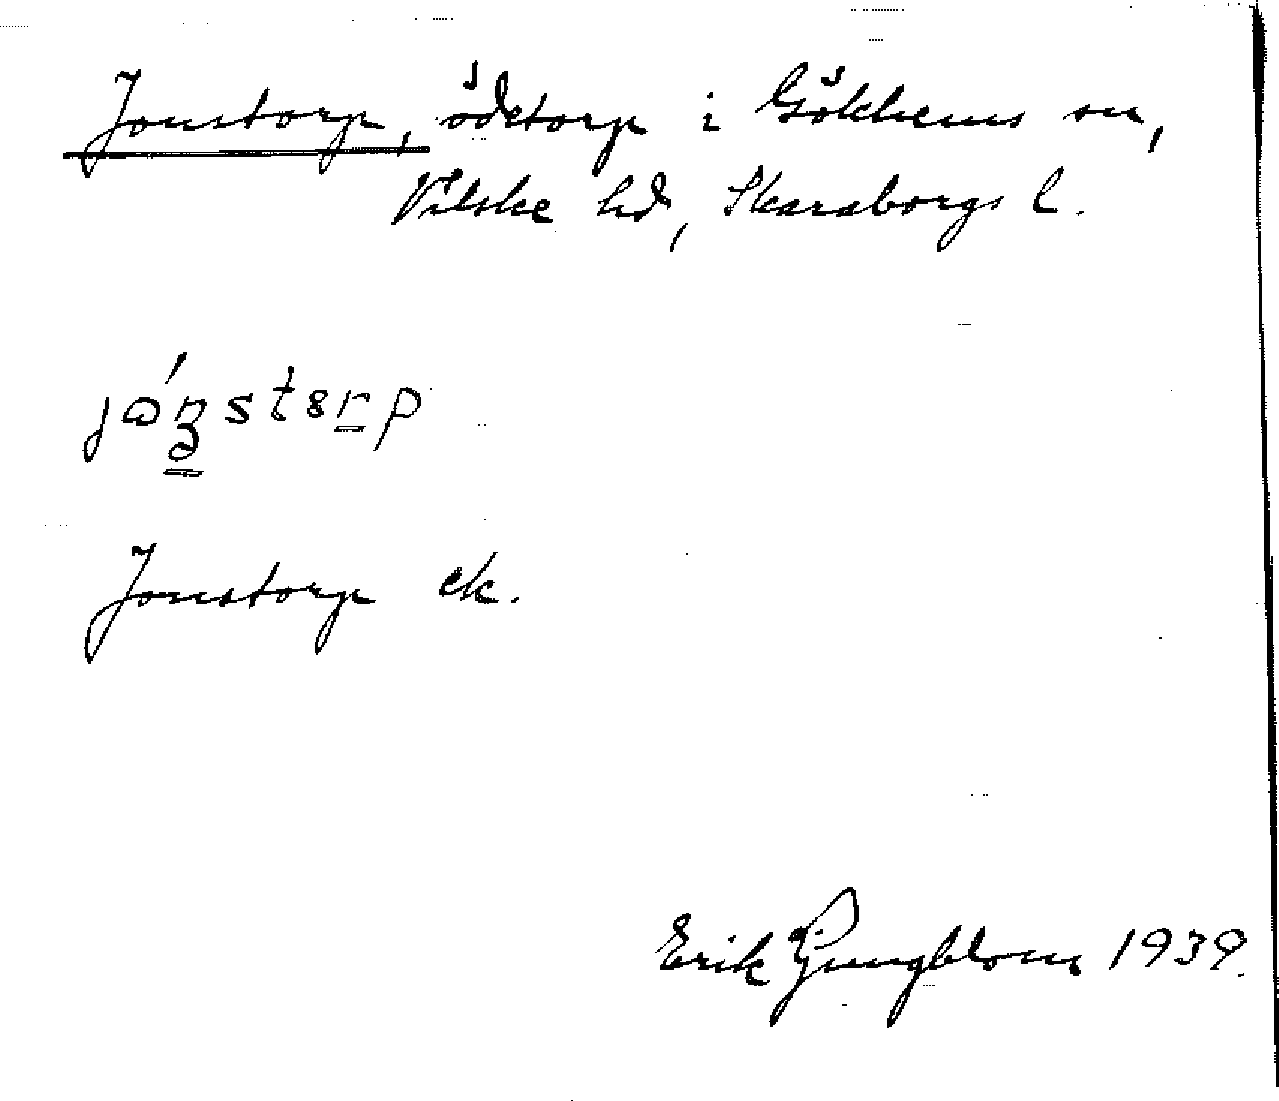 Jonstorp, ödetorp i Gökhems sn,
Vilske hd, Skaraborgs l.
Jonstorp ek.
Erik Ljungblom 1939.